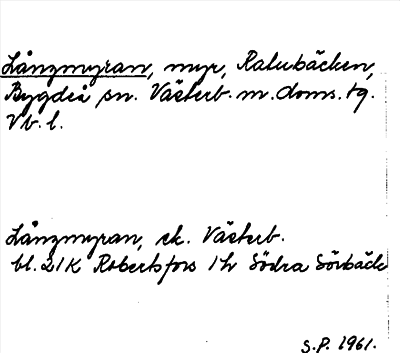 Långmyran, myr, Ralubäcken,
Bygdeå sn. Västerb. m. doms. tg.
Vb. l.
Långmyran, ek. Västerb.
bl. 21K Robertsfors 1h Södra Sörbäck
S.P. 1961.